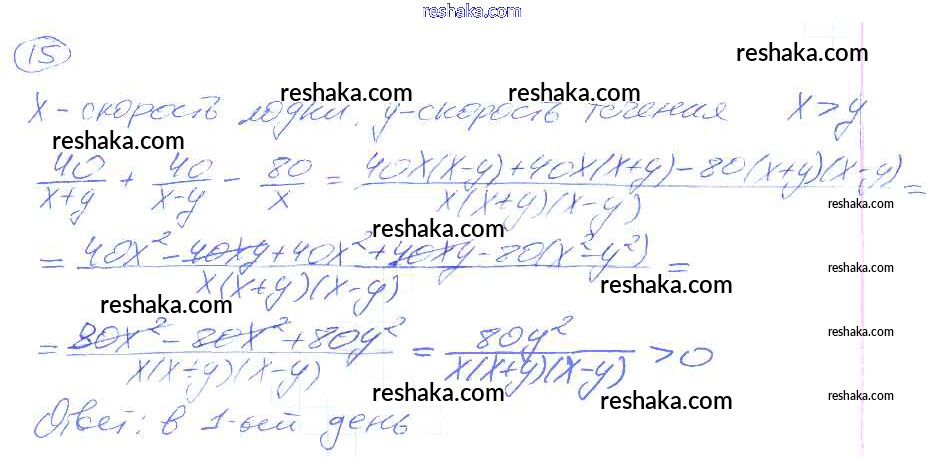 reshaka.com
15
reshaka.com
reshaka.com reshaka.com
x - скорость лодки, y - скорость течения x > y
reshaka.com
40/(x+y) + 40/(x-y) - 80/x = (40x(x-y)+40x(x+y)-80(x+y)(x-y))/(x(x+y)(x-y)) =
reshaka.com
reshaka.com
= (40x²-40xy+40x²+40xy-80(x²-y²))/(x(x+y)(x-y)) =
reshaka.com
reshaka.com
reshaka.com
= (80x²-80x²+80y²)/(x(x+y)(x-y)) = 80y²/(x(x+y)(x-y)) > 0
reshaka.com
reshaka.com
reshaka.com
reshaka.com
Ответ: в 1-ый день